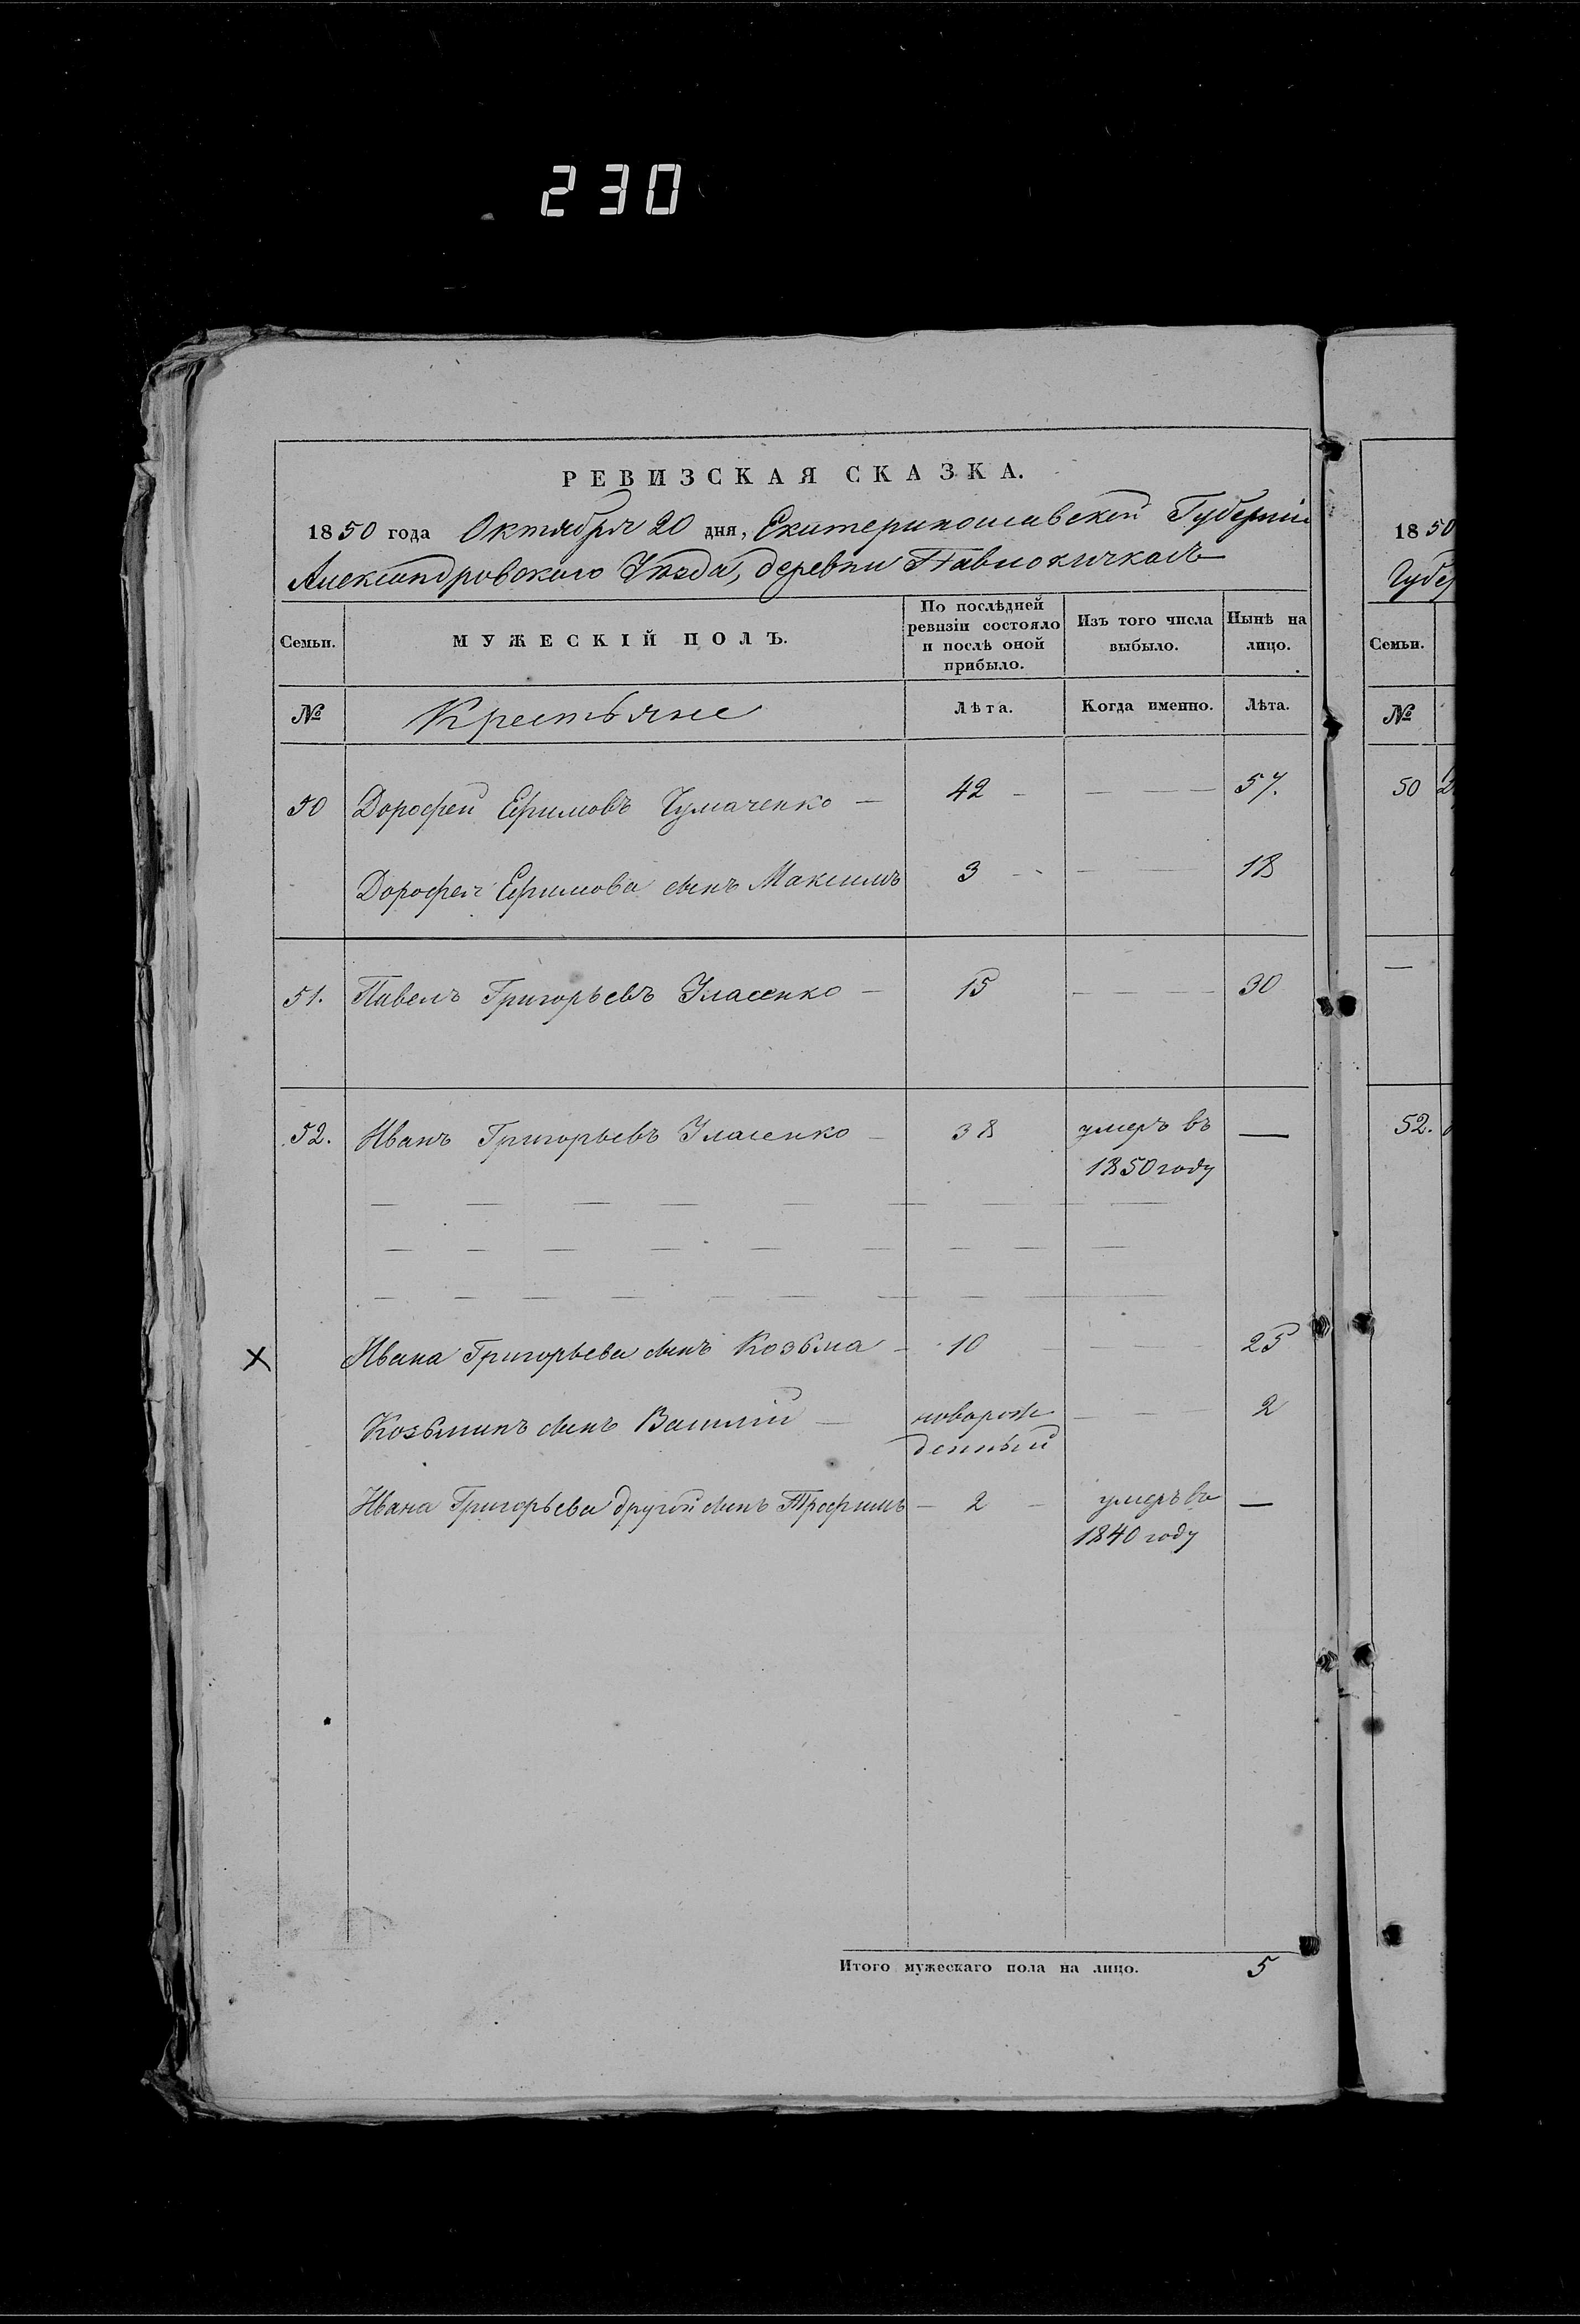 230
РЕВИЗСКАЯ СКАЗКА.
1850 года Октября 20 дня, Екатеринославской Губерніи
Александровского Уѣзда, деревни Павлокичкасъ
Семьи. МУЖЕСКІЙ ПОЛЪ. По послѣдней ревизіи состояло и послѣ оной прибыло. Изъ того числа выбыло. Нынѣ на лицо.
№ Крестьяне Лѣта. Когда именно. Лѣта.
50 Дорофей Ефимовъ Чумаченко — 42 — — — — 57.
Дорофея Ефимова сынъ Максимъ 3 — — — 18
51. Павелъ Григорьевъ Уласенко — 15 — — 30
52. Иванъ Григорьевъ Уласенко — 38 умеръ въ —
1850 году
Ивана Григорьева сынъ Козьма — 10 — 25
Козьминъ сынъ Василій — новорож — — 2
денный
Ивана Григорьева другой сынъ Трофимъ — 2 — умеръ въ —
1840 году
Итого мужескаго пола на лицо. 5
1850
Губер
Семьи.
№
50
—
52.